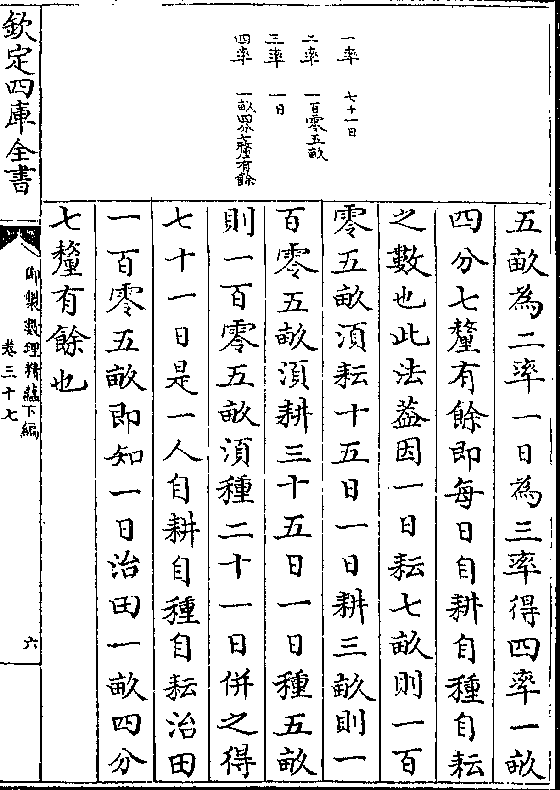 一率　七十一日
二率　一百零五畝
三率　一日
四率　一畝四分七釐有餘
五畝為二率一日為三率得四率一畝
四分七釐有餘即每日自耕自種自耘
之數也此法葢因一日耘七畝則一百
零五畝須耘十五日一日耕三畝則一
百零五畝須耕三十五日一日種五畝
則一百零五畝須種二十一日併之得
七十一日是一人自耕自種自耘治田
一百零五畝即知一日治田一畝四分
七釐有餘也
欽定四庫全書
御製數理精蘊下編
卷三十七
六